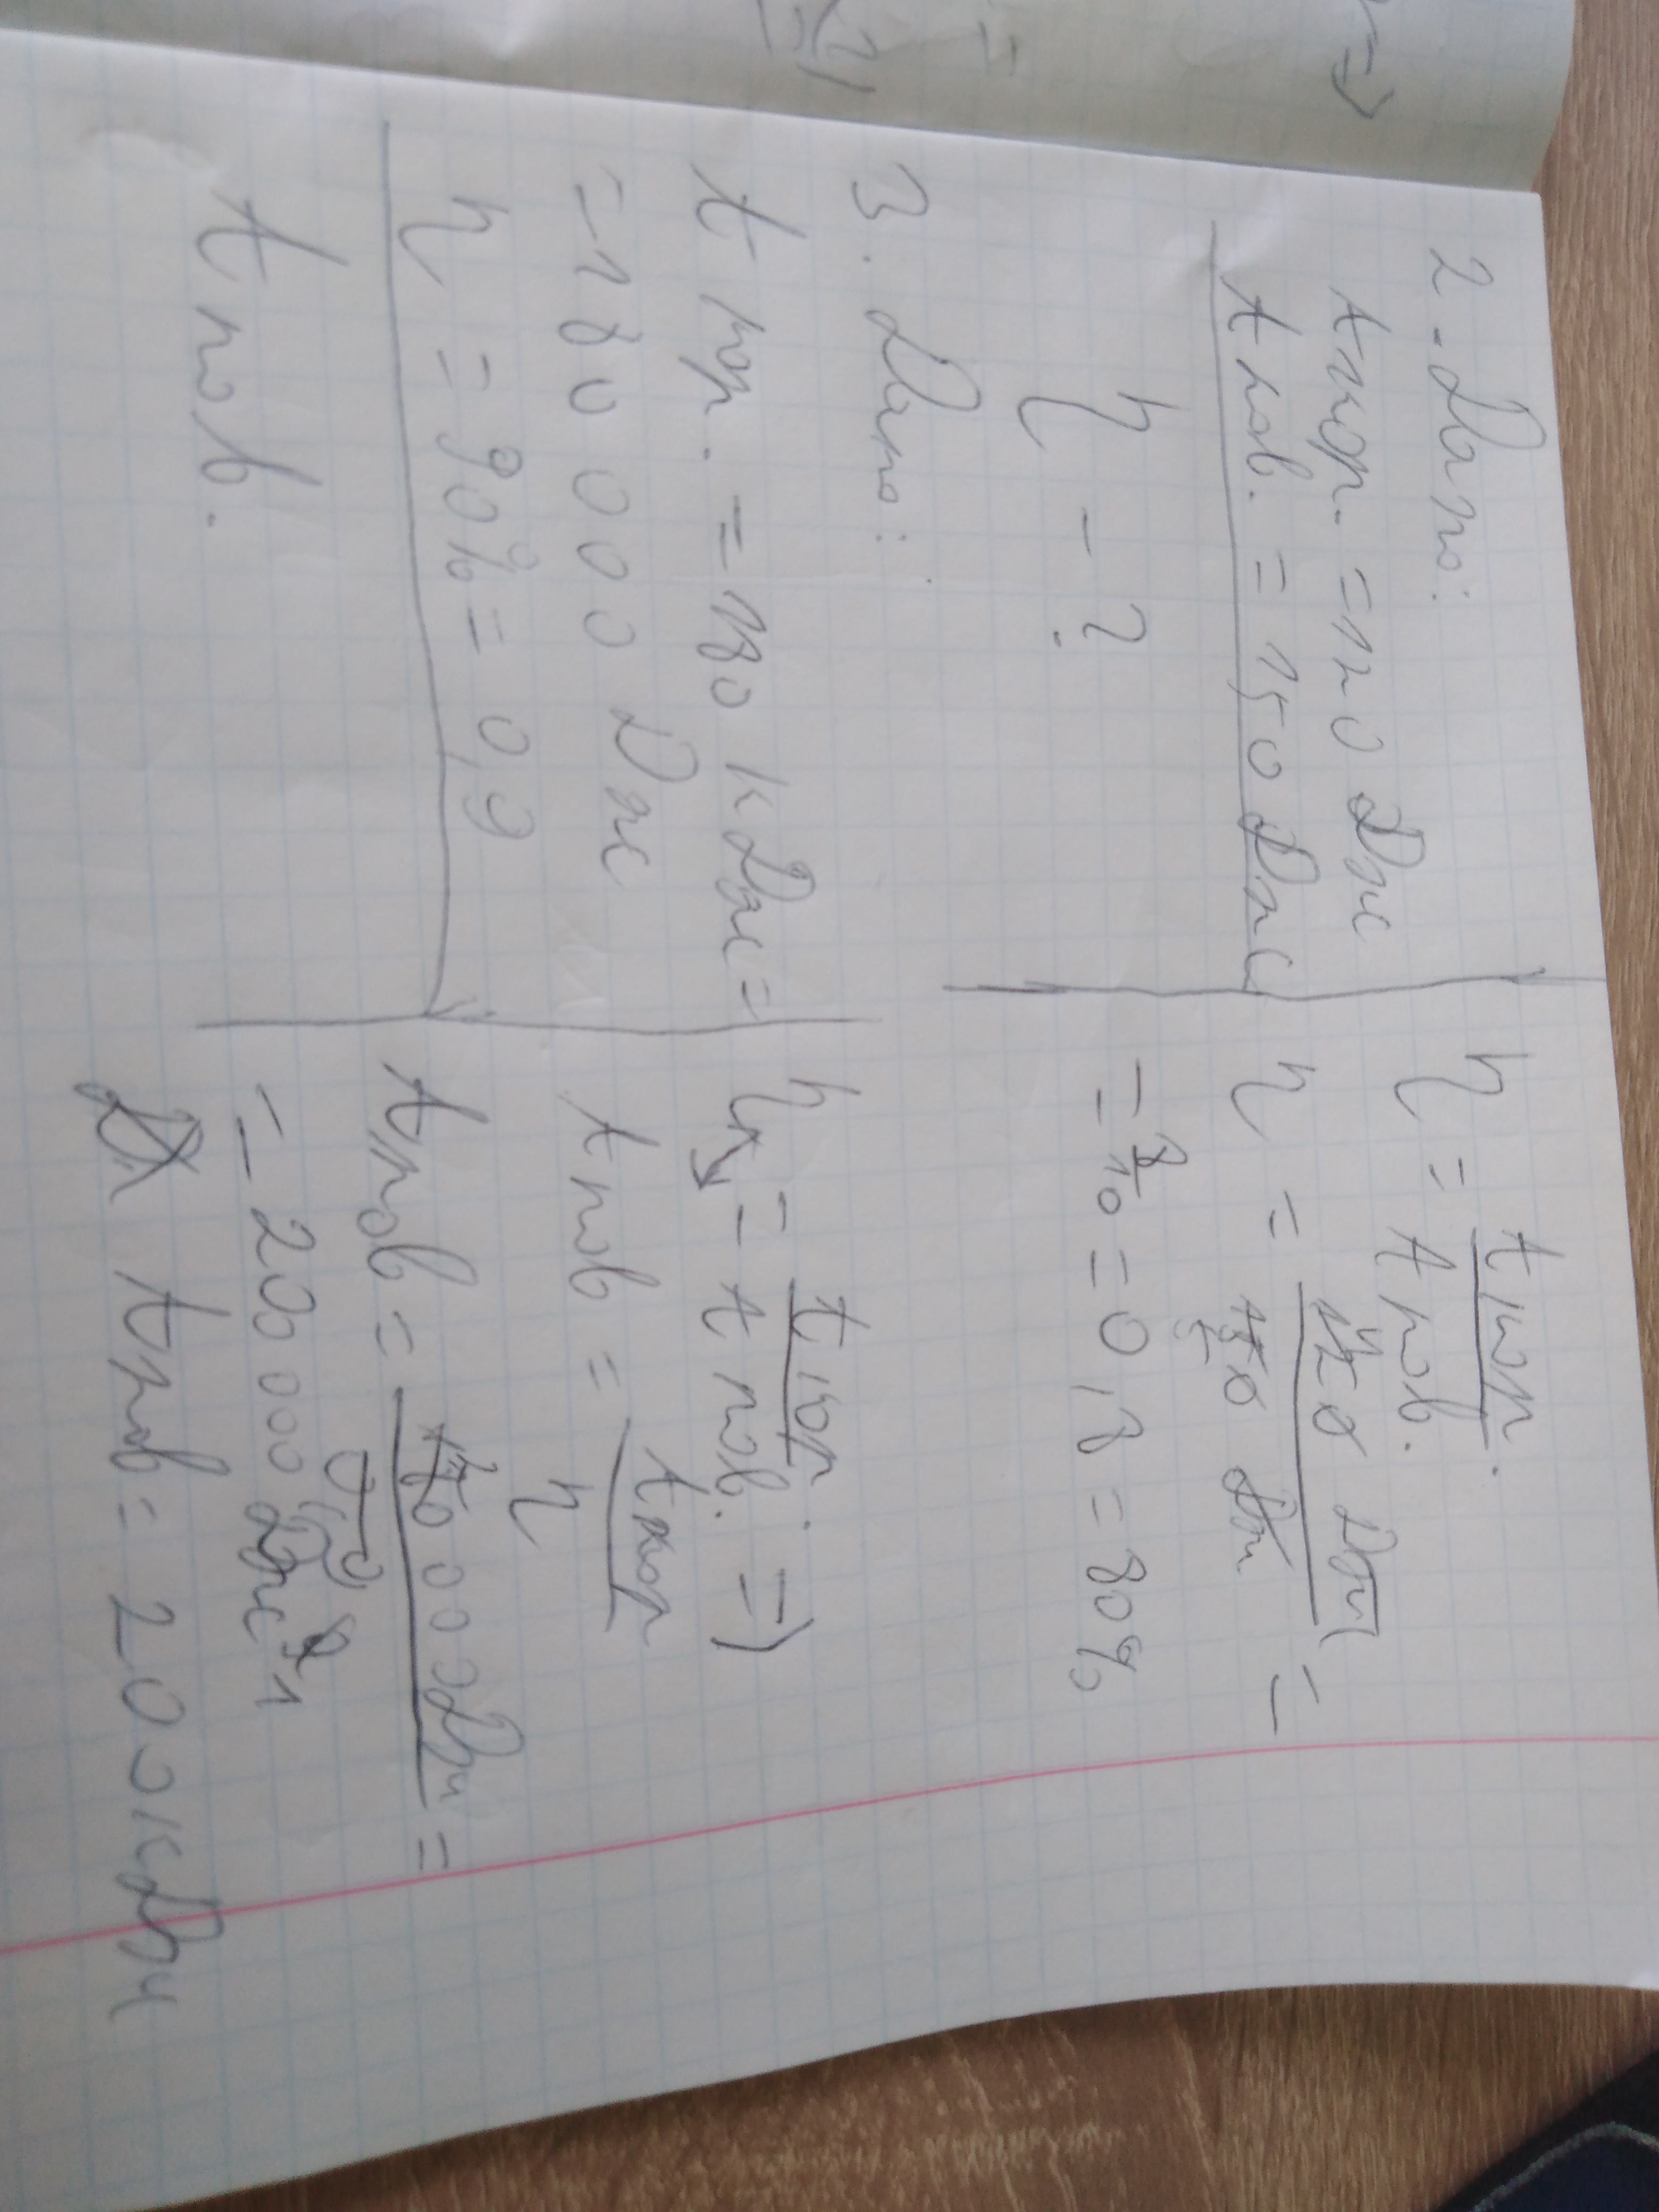 2. Дано:
Aкор. = 120 Дж
Aпов. = 150 Дж
η - ?
η = Aкор. / Aпов.
η = 120 Дж / 150 Дж =
= 8/10 = 0,8 = 80%
3. Дано:
Aкор. = 180 кДж =
= 180 000 Дж
η = 90% = 0,9
Aпов.
η = Aкор. / Aпов. =>
Aпов = Aкор / η
Aпов = 180 000 Дж / 0,9 =
= 200 000 Дж
Aпов = 200 кДж